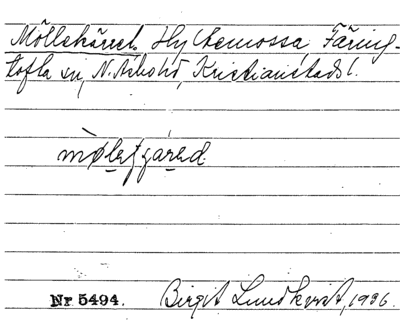 Möllekärret, Hyltemossa, Färing-
tofta sn, N. Åsbo hd, Kristianstads l.
Nr 5494. Birgit Lundkvist, 1936.